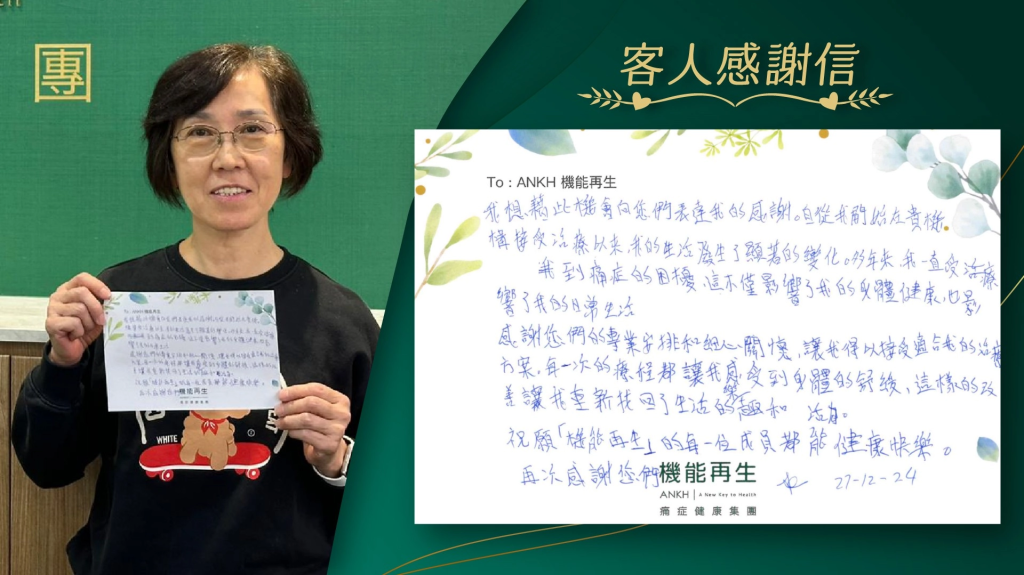 專
客人感謝信
To : ANKH 機能再生
我想藉此機會向您們表達我的感謝。自從我開始在貴機
構接受治療以來,我的生活發生了顯著的變化。多年來,我一直受治療
我到痛症的困擾,這不僅影響了我的身體健康,也影
響了我的日常生活
感謝您們的專業安排和細心關懷,讓我得以接受適合我的治療
方案,每一次的療程都讓我感受到身體的舒緩,這樣的改
善讓我重新找回了生活的樂趣和 活力。
祝願「機能再生」的每一位成員都能健康快樂。
再次感謝您們
27-12-24
機能再生
ANKH | A New Key to Health
痛症健康集團
WHITE